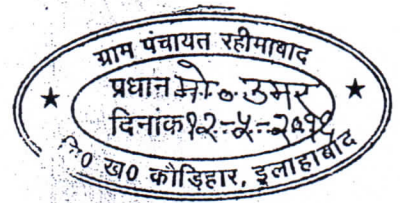 ग्राम पंचायत रहीमाबाद
प्रधान मो० उमर
दिनांक १२-५-२०१६
वि० ख० कौड़िहार, इलाहाबाद